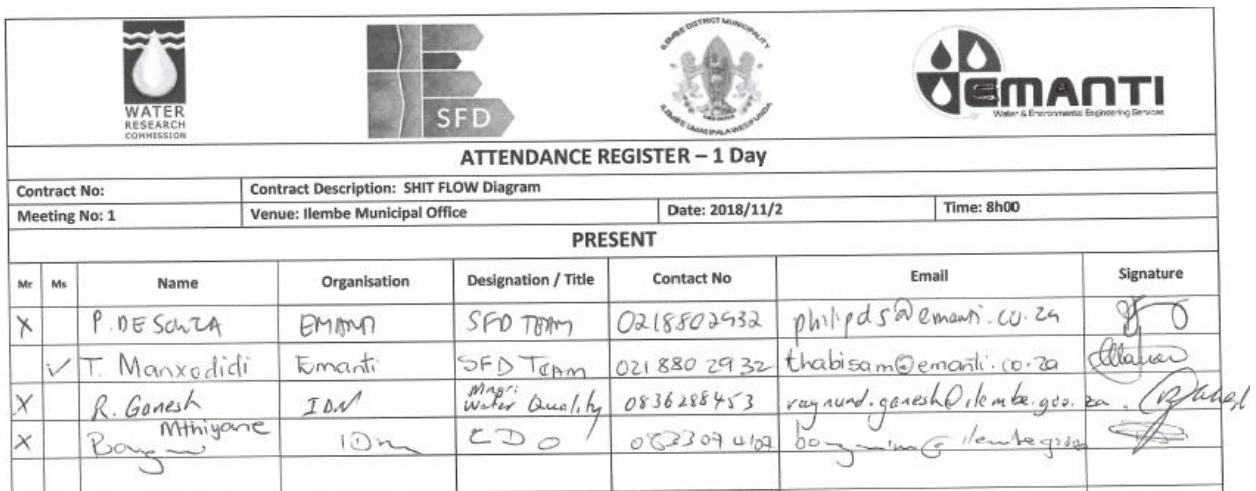 WATER
RESEARCH
COMMISSION
SFD
ILEMBE DISTRICT MUNICIPALITY
ILEMBE UMASIPALA WESIFUNDA
EMANTI
Water & Environmental Engineering Services
ATTENDANCE REGISTER – 1 Day
Contract No: Contract Description: SHIT FLOW Diagram
Meeting No: 1 Venue: Ilembe Municipal Office Date: 2018/11/2 Time: 8h00
PRESENT
Mr Ms Name Organisation Designation / Title Contact No Email Signature
X P. DE SOUZA EMANTI SFD TEAM 0218802932 philipds@emanti.co.za
✓ T. Manxodidi Emanti SFD TEAM 021 880 2932 thabisam@emanti.co.za
X R. Ganesh IDM Mngr: Water Quality 0836288453 raymund.ganesh@ilembe.gov.za
X Mthiyane IDm